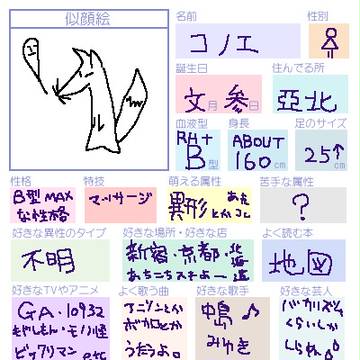 似顔絵
名前
性別
コノエ
誕生日
住んでる所
文月参日
亞北
血液型
身長
足のサイズ
RH+
B型
ABOUT
160cm
25↑cm
性格
特技
萌える属性
苦手な属性
B型MAX
な性格
マッサージ
異形
?
好きな異性のタイプ
好きな場所・好きな店
よく読む本
不明
新宿・京都・北海道
あちこちスキよー
地図
好きなTVやアニメ
よく歌う曲
好きな歌手
好きな芸人
GA・10932
もやしもん・モノノ怪
ビックリマン
etc
アニソンとか
ボカロとか
うたうよ。
中島♪
みゆき
バカリズム
くらいしか
しらぬ。